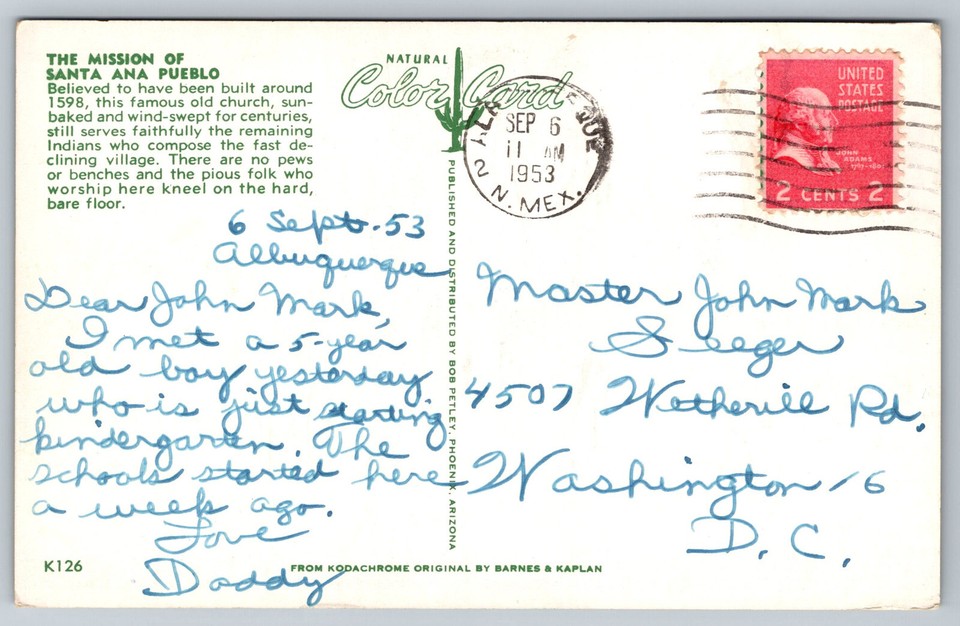 THE MISSION OF
SANTA ANA PUEBLO
Believed to have been built around
1598, this famous old church, sun-
baked and wind-swept for centuries,
still serves faithfully the remaining
Indians who compose the fast de-
clining village. There are no pews
or benches and the pious folk who
worship here kneel on the hard,
bare floor.
NATURAL
Color Card
SEP 6
11 AM
1953
2 N. MEX.
UNITED
STATES
POSTAGE
JOHN
ADAMS
2 CENTS 2
6 Sept. 53
Albuquerque
Dear John Mark,
I met a 5-year
old boy yesterday
who is just starting
kindergarten. The
schools started here
a week ago.
Love
Daddy
PUBLISHED AND DISTRIBUTED BY BOB PETLEY, PHOENIX, ARIZONA
Master John Mark
Seeger
4507 Wetherill Rd.
Washington 16
D. C.
K126
FROM KODACHROME ORIGINAL BY BARNES & KAPLAN